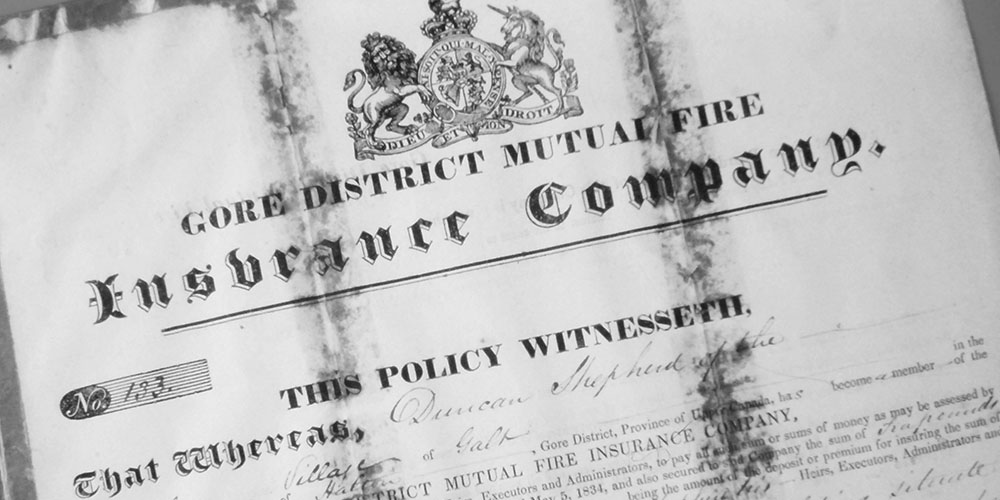 HONI SOIT QUI MAL Y PENSE
DIEU ET MON DROIT
GORE DISTRICT MUTUAL FIRE
Insvrance Company.
THIS POLICY WITNESSETH,
No. 133.
That Whereas, Duncan Shepherd of the
Village of Galt, Gore District, Province of Upper Canada, has become a member of the
in the
DISTRICT MUTUAL FIRE INSURANCE COMPANY,
Executors and Administrators, to pay all sum or sums of money as may be assessed by
May 5, 1834, and also secured to said Company the sum of
being the amount of the deposit or premium for insuring the sum of
Heirs, Executors, Administrators and